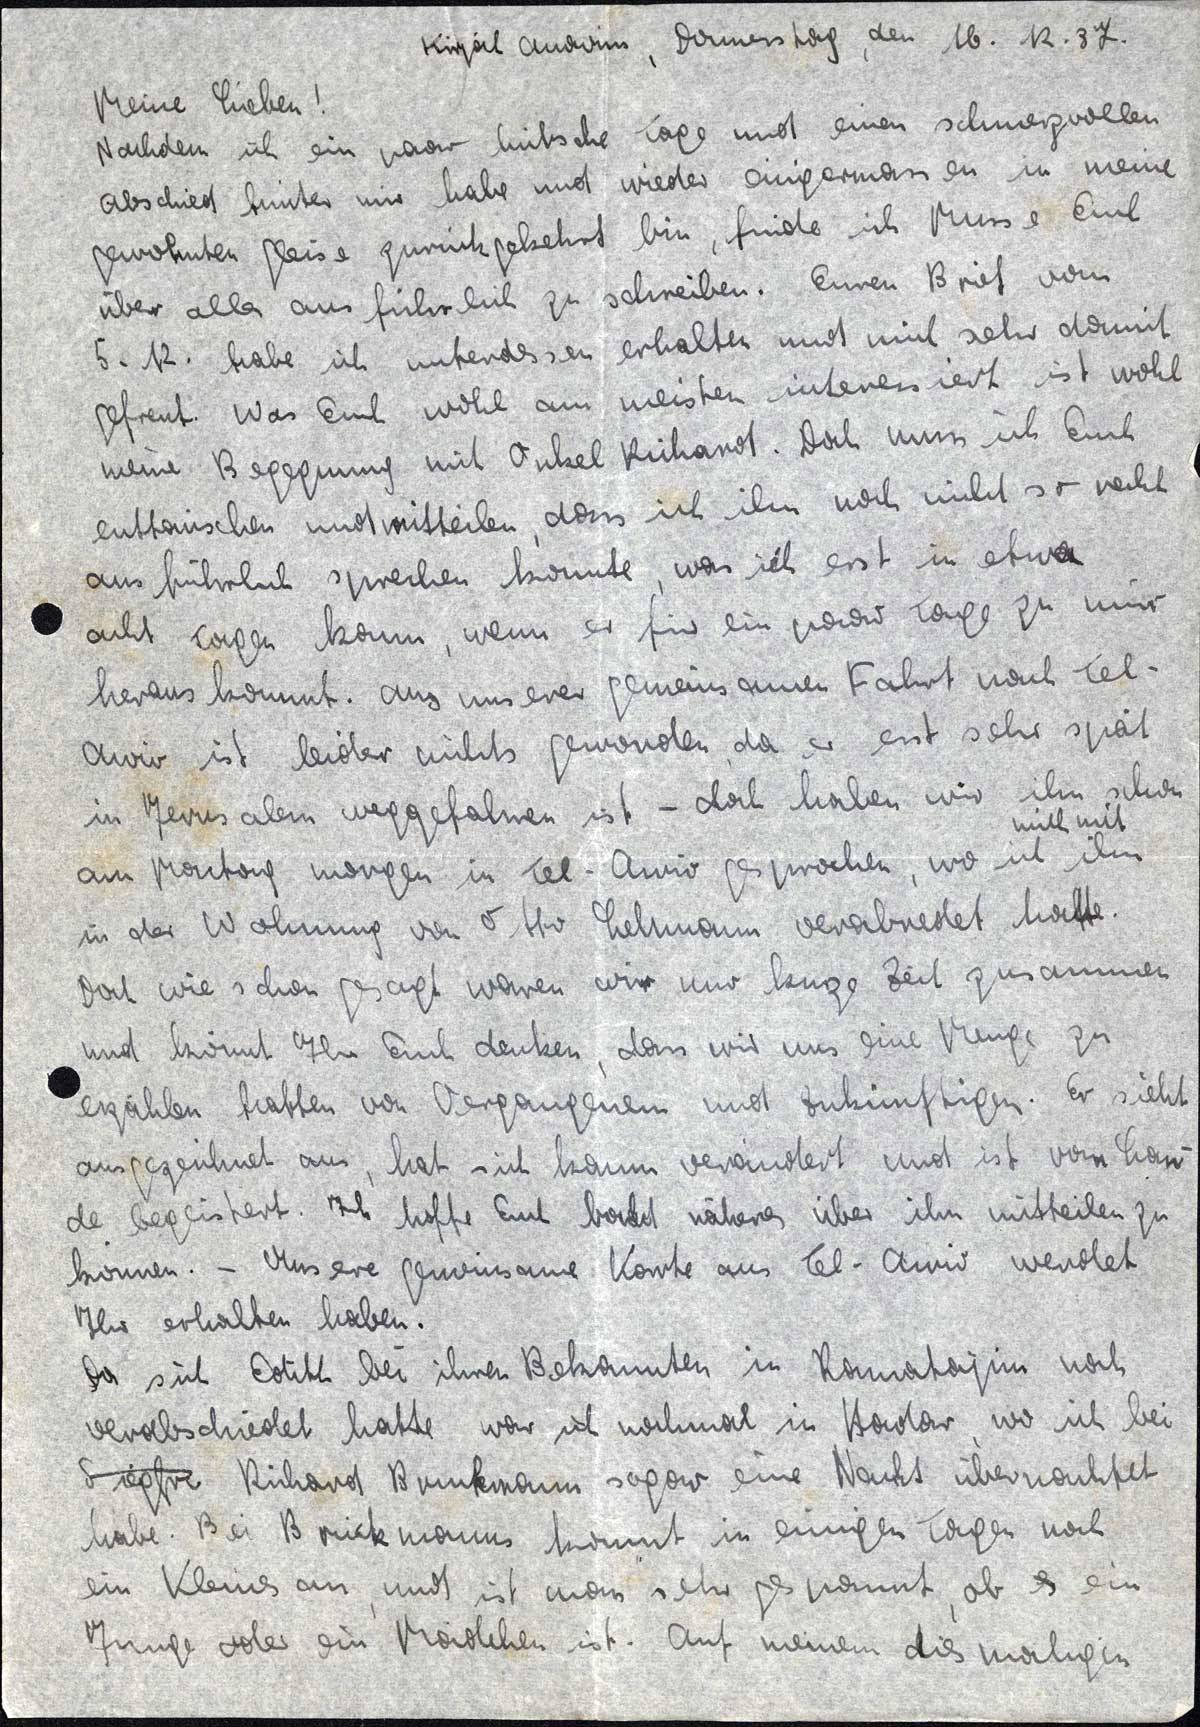 Kirjat Anavim, Donnerstag, den 16. 12. 37.
Meine Lieben!
Nachdem ich ein paar hübsche Tage und einen schmerzvollen
Abschied hinter mir habe und wieder einigermassen in meine
gewohnten Gleise zurückgekehrt bin, finde ich Musse Euch
über alles ausführlich zu schreiben. Euren Brief vom
5. 12. habe ich unterdessen erhalten und mich sehr damit
gefreut. Was Euch wohl am meisten interessiert ist wohl
meine Begegnung mit Onkel Richard. Doch muss ich Euch
enttäuschen und mitteilen, dass ich ihn noch nicht so recht
ausführlich sprechen konnte, was ich erst in etwa
acht Tagen kann, wenn er für ein paar Tage zu mir
heraus kommt. Aus unserer gemeinsamen Fahrt nach Tel-
Awiv ist leider nichts geworden, da er erst sehr spät
in Jerusalem weggefahren ist – doch haben wir ihn schon
am Montag morgen in Tel-Awiv gesprochen, wo ich mich mit ihm
in der Wohnung von Otto Lehmann verabredet hatte.
Doch wie schon gesagt waren wir nur kurze Zeit zusammen
und könnt Ihr Euch denken, dass wir uns eine Menge zu
erzählen hatten von Vergangenem und Zukünftigen. Er sieht
ausgezeichnet aus, hat sich kaum verändert und ist vom Lan-
de begeistert. Ich hoffe Euch bald näheres über ihn mitteilen zu
können. – Unsere gemeinsame Karte aus Tel-Awiv werdet
Ihr erhalten haben.
Da sich Edith bei ihren Bekannten in Ramatajim noch
verabschiedet hatte war ich nochmal in Hadar, wo ich bei
Siegfrie Richard Bruckmann sogar eine Nacht übernachtet
habe. Bei Bruckmanns kommt in einigen Tagen noch
ein Kleines an, und ist man sehr gespannt, ob es ein
Junge oder ein Mädchen ist. Auf meinem diesmaligen